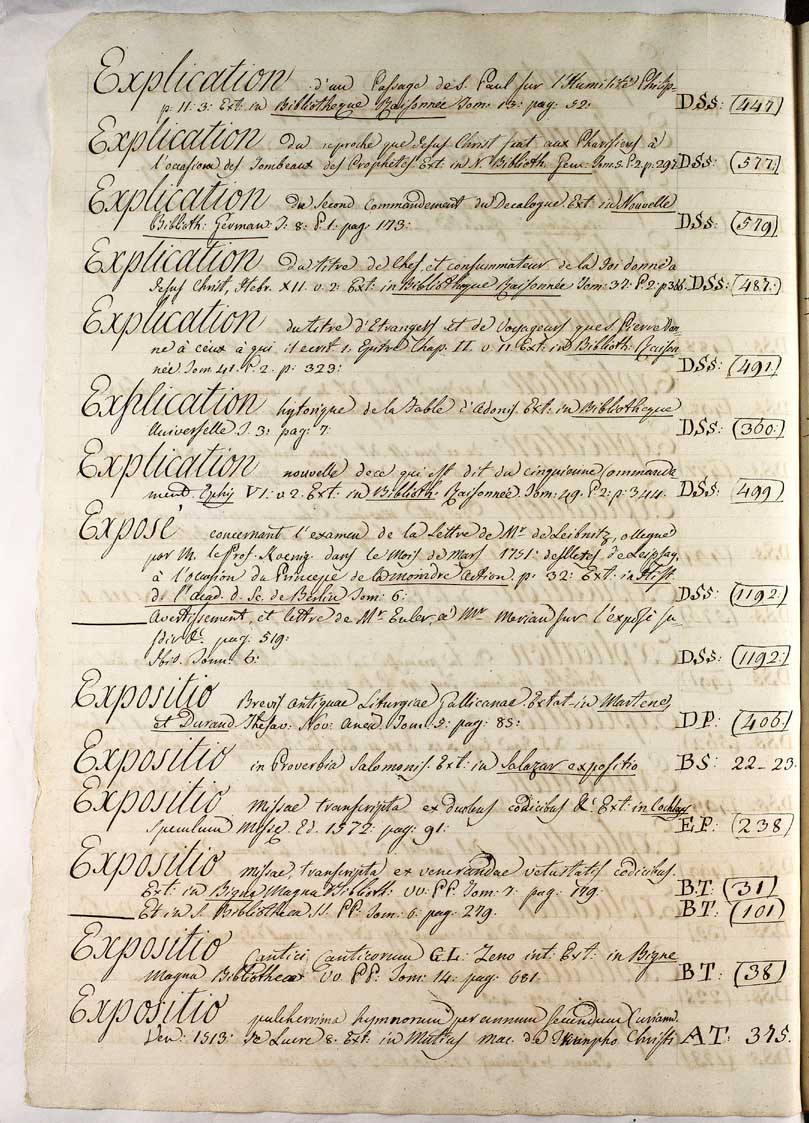 Explication d'un Passage de S. Paul sur l'Humilité Philip-
p: 11: 3: Ext: in Bibliotheque Raisonnée Tom: 13: pag: 52: DSS: (447)
Explication du reproche que Jesus Christ fait aux Pharisiens à
l'occasion des Tombeaux des Prophetes. Ext: in N. Biblioth. Germ: Tom. 5. P. 2. p: 297 DSS: (577:)
Explication du Second Commandement du Decalogue Ext: in Nouvelle
Biblioth: German: T: 8: P. 1. pag: 173: DSS: (579)
Explication du titre de Chef, et consummateur de la Foi donné a
Jesus Christ, Hebr. XII. v: 2: Ext: in Bibliotheque Raisonnée Tom: 37: P. 2: p: 366: DSS: (487:)
Explication du titre d'Etrangers et de Voyageurs que S. Pierre don-
ne à ceux à qui il ecrit 1. Epitre Chap: II. v: 11. Ext: in Biblioth: Raison
née Tom 41. P. 2. p: 323: DSS: (491)
Explication hystorique de la Fable d'Adonis. Ext: in Bibliotheque
Universelle T. 3: pag: 7: DSS: (360:)
Explication nouvelle de ce qui est dit du cinquieme Commande
ment. Ephes VI: v. 2. Ext: in Biblioth: Raisonnée Tom: 49. P: 2: p: 344. DSS: (499)
Exposé concernant l'examen de la Lettre de Mr. de Leibnitz, allegué
par M. le Prof. Koenig dans le Mois de Mars 1751: des Actes de Leipsag,
à l'occasion du Principe de la moindre Action. p: 32: Ext: in Hist.
de l'Acad. d. Sc. de Berlin Tom: 6: DSS: (1192:)
Avertissement, et Lettre de Mr. Euler, à Mr. Merian sur l'exposé su-
dit &c. pag: 519:
Ibid. Tom: 6: DSS: (1192:)
Expositio Brevis antiquae Liturgiae Gallicanae. Extat in Martene,
et Durand Thesav: Nov: Anecd. Tom: 5: pag: 85: DP: (406:)
Expositio in Proverbia Salomonis. Ext: in Salazar expositio BS: 22-23.
Expositio Missae transcripta ex duobus codicibus &c. Ext: in Cochlaeus
Speculum Missae. Ed. 1572: pag: 91: EP: (238)
Expositio missae, transcripta ex venerandae vetustatis codicibus.
Ext: in Bigne Magna Biblioth: VV. PP. Tom: 7. pag: 179. BT: (31)
Et in S. Bibliotheca SS. PP. Tom: 6. pag: 279. BT: (101)
Expositio Cantici Canticorum G. L: Zeno int: Ext: in Bigne
Magna Bibliotheca VV PP: Tom: 14: pag: 681. BT: (38)
Expositio pulcherrima hymnorum per annum secundum Curiam.
Ven: 1513: De Luere 8. Ext: in Mutius Mac. de Triumpho Christi AT: 345.